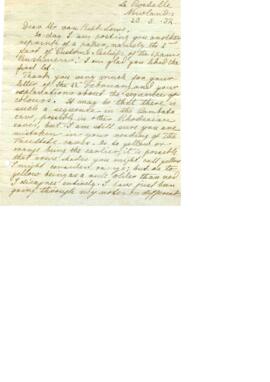 La Rochelle
Newlands
23. 3. 32.
Dear Mr van Riet Lowe,
To-day I am posting you another
reprint of a paper, namely the 2nd
part of "Customs & Beliefs of the
Bushmen". I am glad you liked the
first lot.
Thank you very much for your
letter of the February and your
explanations about the sequence of
colours. It may be that there is
such a sequence in the
cave, possibly in other Rhodesian
caves, but I am still sure you are
mistaken in your reading of the
rocks. As to yellow or
orange being the earlier, it is possible
that some shades you might call yellow
I might consider orange; but as to
yellow being as a rule older than red
I disagree entirely. I have just been
going through my notes on different